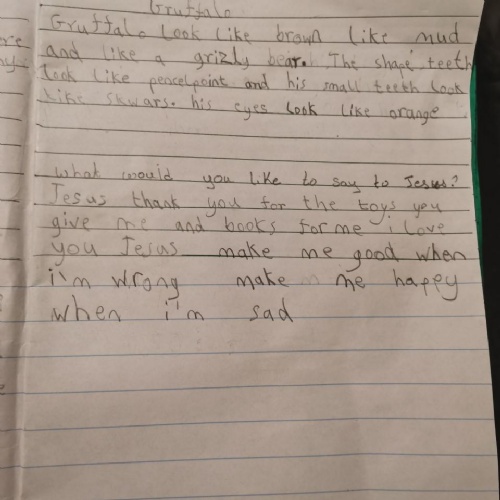 Gruffalo
Gruffalo Look Like brown Like mud
and Like a grizly bear. The shape teeth
Look Like pencelpoint and his small teeth Look
Like skwars. his eyes Look Like orange
What would you Like to say to Jesus?
Jesus thank you for the toys you
give me and books for me i Love
you Jesus make me good when
i'm wrong make me happy
when i'm sad